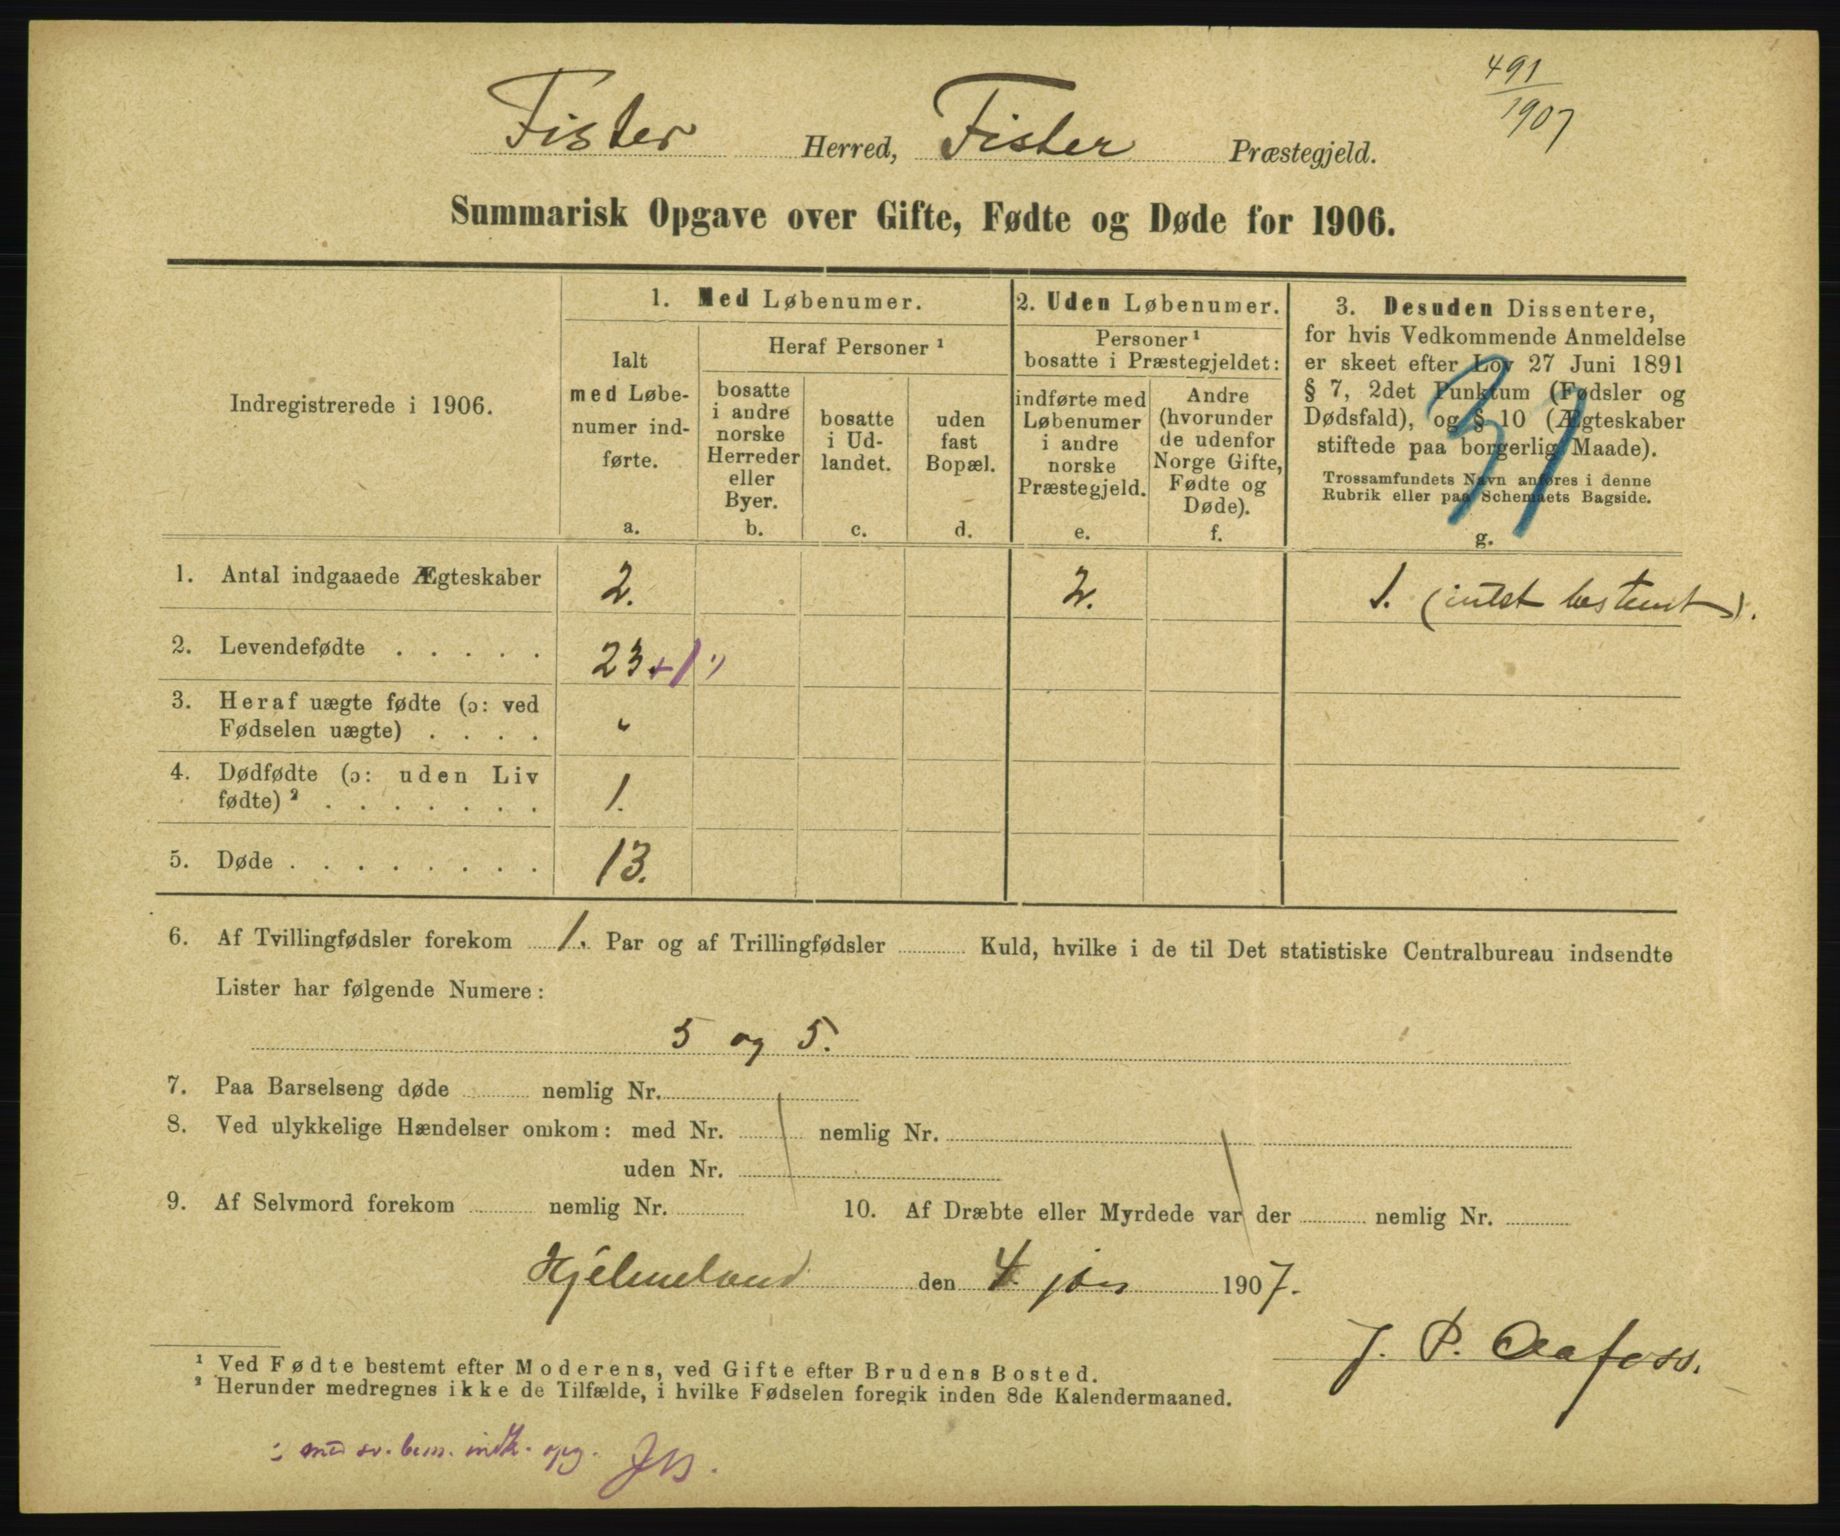 491
1907
Fister Herred, Fister Præstegjeld.
Summarisk Opgave over Gifte, Fødte og Døde for 1906.
Indregistrerede i 1906.
1. Med Løbenumer.
Ialt
med Løbe-
numer ind-
førte.
a.
Heraf Personer ¹
bosatte
i andre
norske
Herreder
eller
Byer.
b.
bosatte
i Ud-
landet.
c.
uden
fast
Bopæl.
d.
2. Uden Løbenumer.
Personer ¹
bosatte i Præstegjeldet:
indførte med
Løbenumer
i andre
norske
Præstegjeld.
e.
Andre
(hvorunder
de udenfor
Norge Gifte,
Fødte og
Døde).
f.
3. Desuden Dissentere,
for hvis Vedkommende Anmeldelse
er skeet efter Lov 27 Juni 1891
§ 7, 2det Punktum (Fødsler og
Dødsfald), og § 10 (Ægteskaber
stiftede paa borgerlig Maade).
Trossamfundets Navn anføres i denne
Rubrik eller paa Schemaets Bagside.
g.
1. Antal indgaaede Ægteskaber 2. 2. 1. (intet bestemt).
2. Levendefødte . . . . . 23 +1
3. Heraf uægte fødte (ɔ: ved
Fødselen uægte) . . . . "
4. Dødfødte (ɔ: uden Liv
fødte) ² . . . . . . . 1.
5. Døde . . . . . . . . 13.
6. Af Tvillingfødsler forekom 1. Par og af Trillingfødsler Kuld, hvilke i de til Det statistiske Centralbureau indsendte
Lister har følgende Numere:
5 og 5.
7. Paa Barselseng døde nemlig Nr.
8. Ved ulykkelige Hændelser omkom: med Nr. nemlig Nr.
uden Nr.
9. Af Selvmord forekom nemlig Nr. 10. Af Dræbte eller Myrdede var der nemlig Nr.
Hjelmeland den 4. jan 1907.
J. P. Aafoss.
¹ Ved Fødte bestemt efter Moderens, ved Gifte efter Brudens Bosted.
² Herunder medregnes ikke de Tilfælde, i hvilke Fødselen foregik inden 8de Kalendermaaned.
med sv. bem. indk. opg.